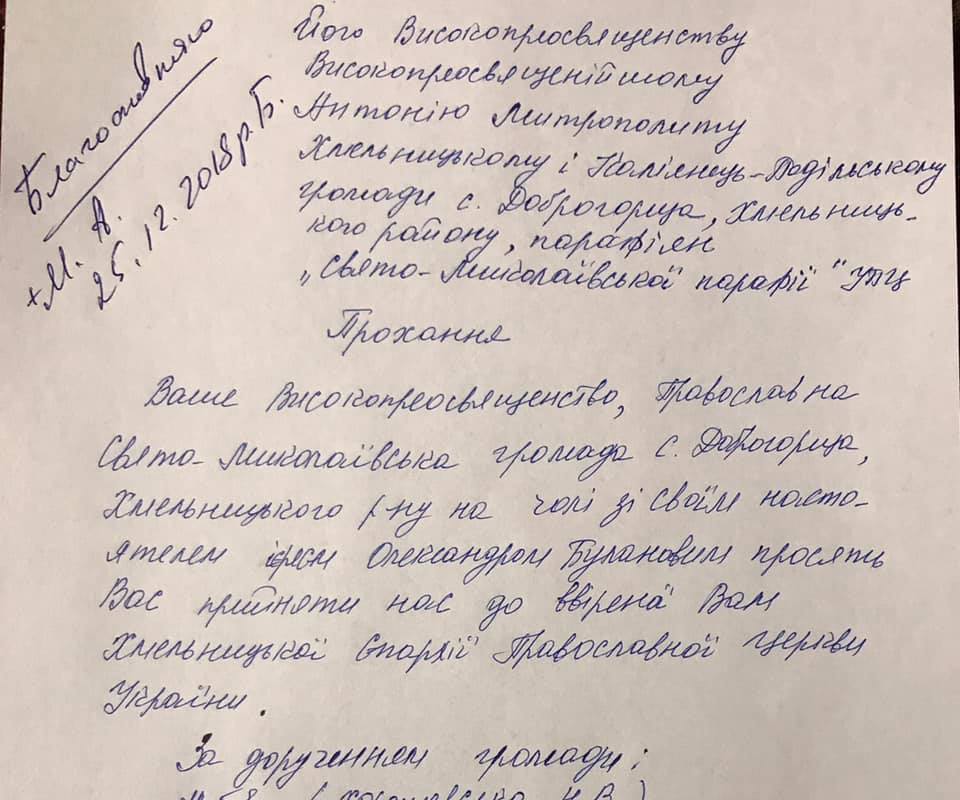 Благословляю
+М. А.
25.12.2018р.Б.
Його Високопреосвященству
Високопреосвященійшому
Антонію Митрополиту
Хмельницькому і Кам'янець-Подільському
громади с. Доброгорща, Хмельниць-
кого району, парафіян
„Свято-Миколаївської парафії" УПЦ
Прохання
Ваше Високопреосвященство, Православна
Свято-Миколаївська громада с. Доброгорща,
Хмельницького р-ну на чолі зі своїм насто-
ятелем ієреєм Олександром Булановим просять
Вас прийняти нас до ввіреної Вам
Хмельницької Єпархії Православної Церкви
України.
За дорученням громади: